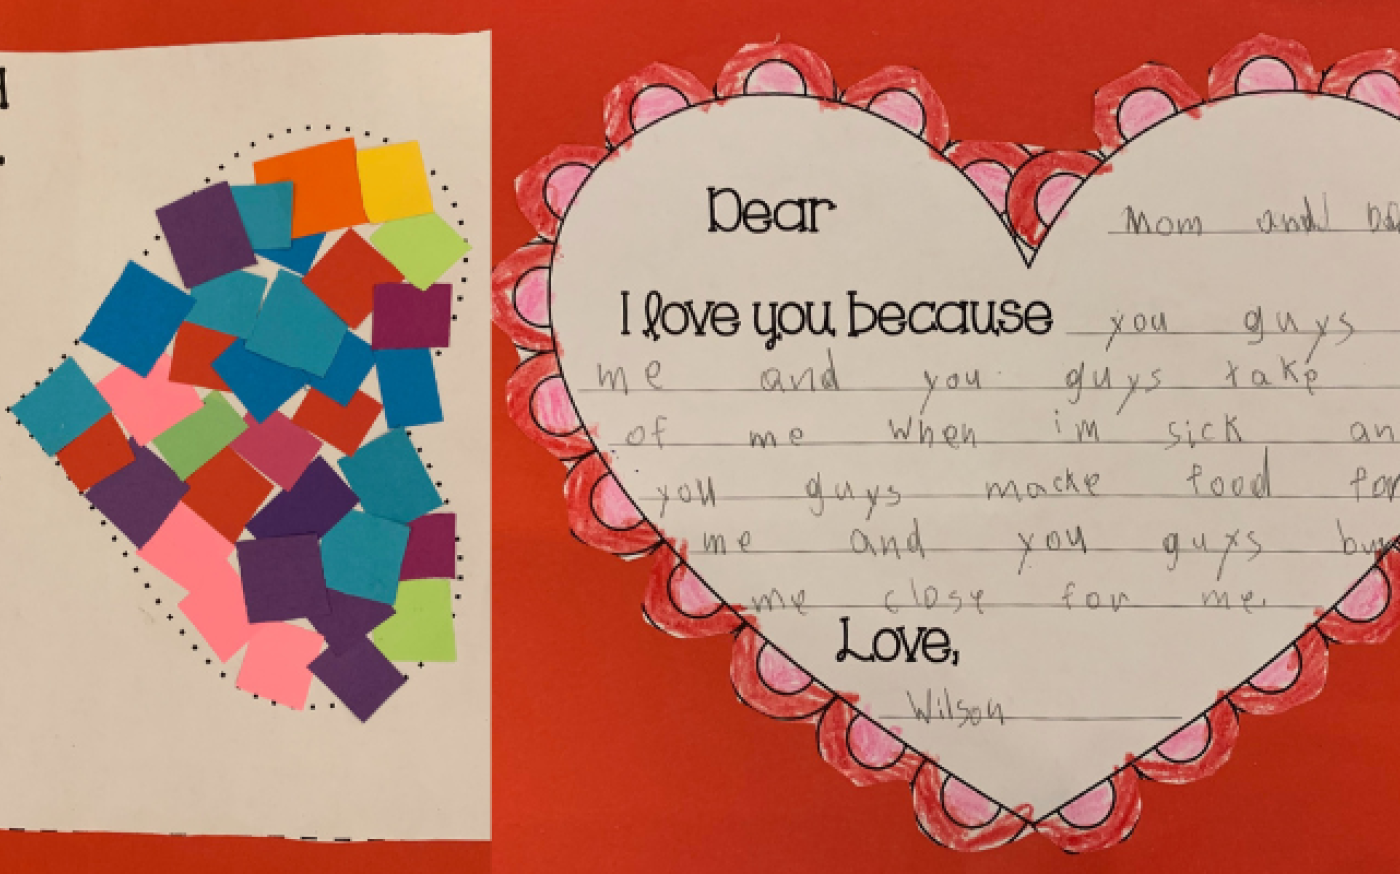 Dear Mom and
I love you because you guys
me and you guys take
of me when im sick an
you guys macke food for
me and you guys buy
me close for me.
Love,
Wilson